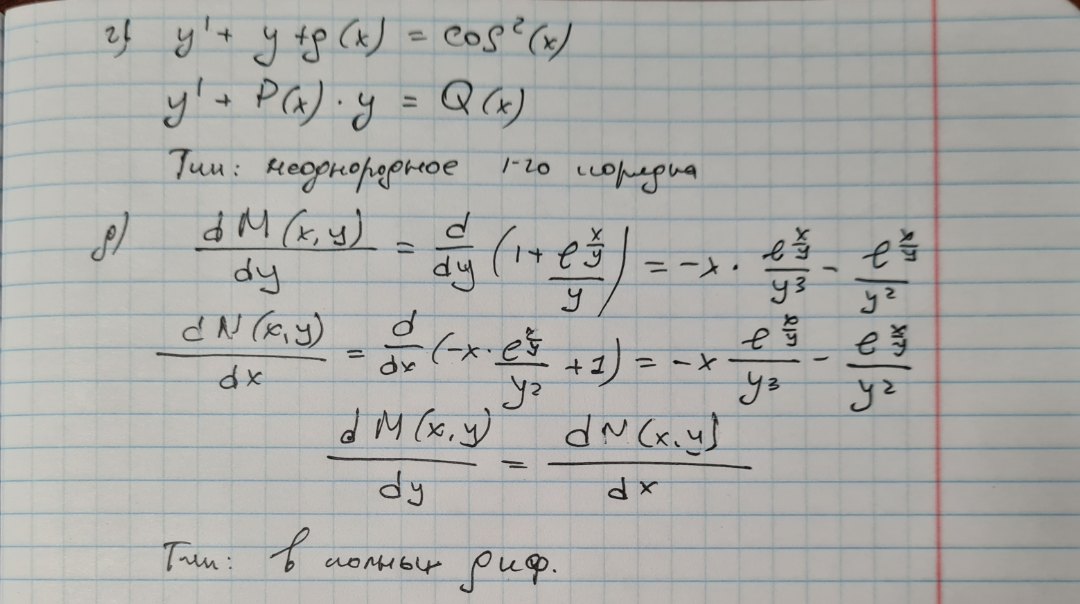 г) y' + y tg(x) = cos²(x)
y' + P(x) · y = Q(x)
Тип: неоднородное 1-го порядка
д) dM(x,y)/dy = d/dy (1 + e^(x/y)/y) = -x · e^(x/y)/y³ - e^(x/y)/y²
dN(x,y)/dx = d/dx (-x · e^(x/y)/y² + 1) = -x e^(x/y)/y³ - e^(x/y)/y²
dM(x,y)/dy = dN(x,y)/dx
Тип: в полных диф.